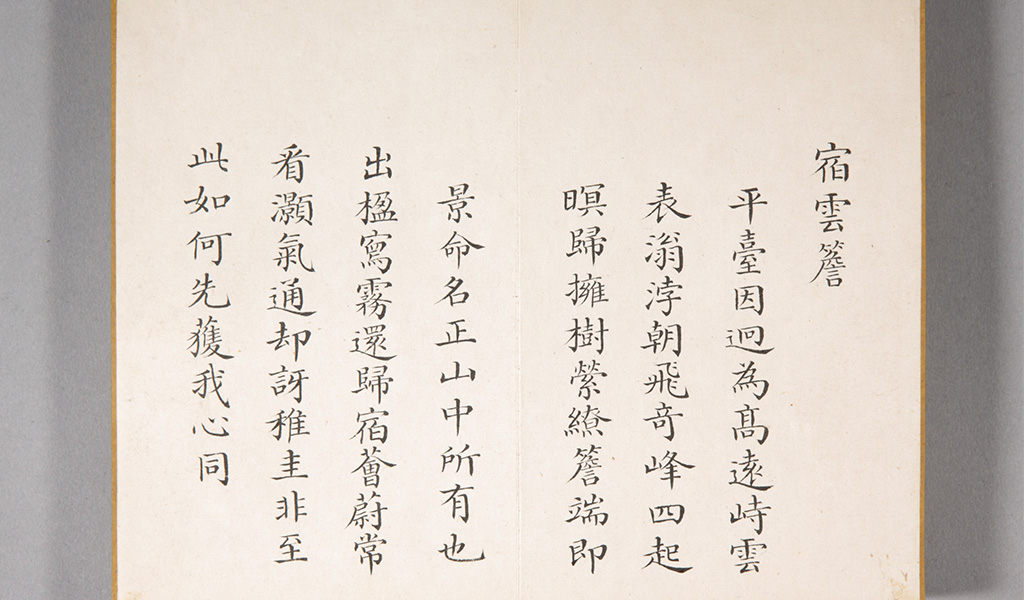 宿雲簷
平臺因迥為髙遠峙雲
表滃浡朝飛竒峰四起
暝歸擁樹縈繚簷端即
景命名正山中所有也
出楹寫霧還歸宿薈蔚常
看灝氣通却訝稚圭非至
此如何先獲我心同